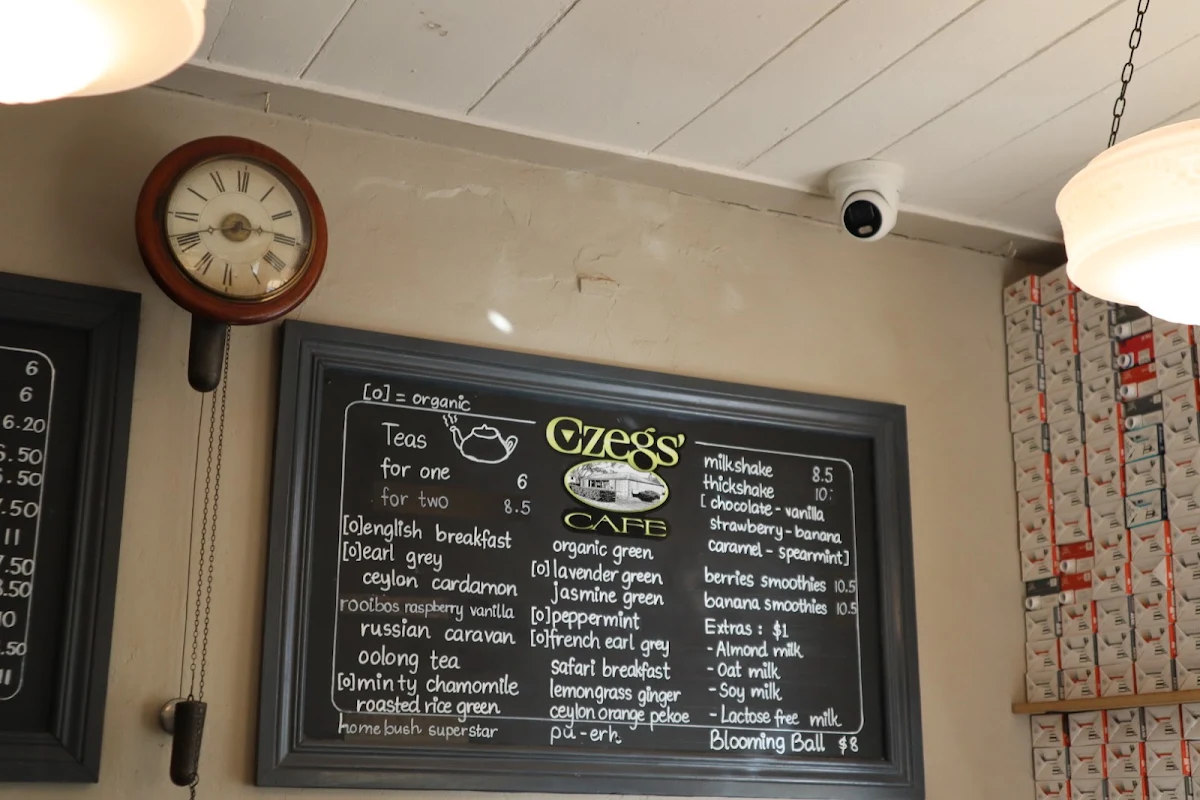 6
6
6.20
6.50
6.50
7.50
11
7.50
8.50
10
.50
11
[o] = organic
Teas
for one 6
for two 8.5
[o]english breakfast
[o]earl grey
ceylon cardamon
rooibos raspberry vanilla
russian caravan
oolong tea
[o]minty chamomile
roasted rice green
homebush superstar
Czegs'
CAFE
organic green
[o]lavender green
jasmine green
[o]peppermint
[o]french earl grey
safari breakfast
lemongrass ginger
ceylon orange pekoe
pu-erh
milkshake 8.5
thickshake 10
[chocolate - vanilla
strawberry - banana
caramel - spearmint]
berries smoothies 10.5
banana smoothies 10.5
Extras : $1
- Almond milk
- Oat milk
- Soy milk
- Lactose free milk
Blooming Ball $8